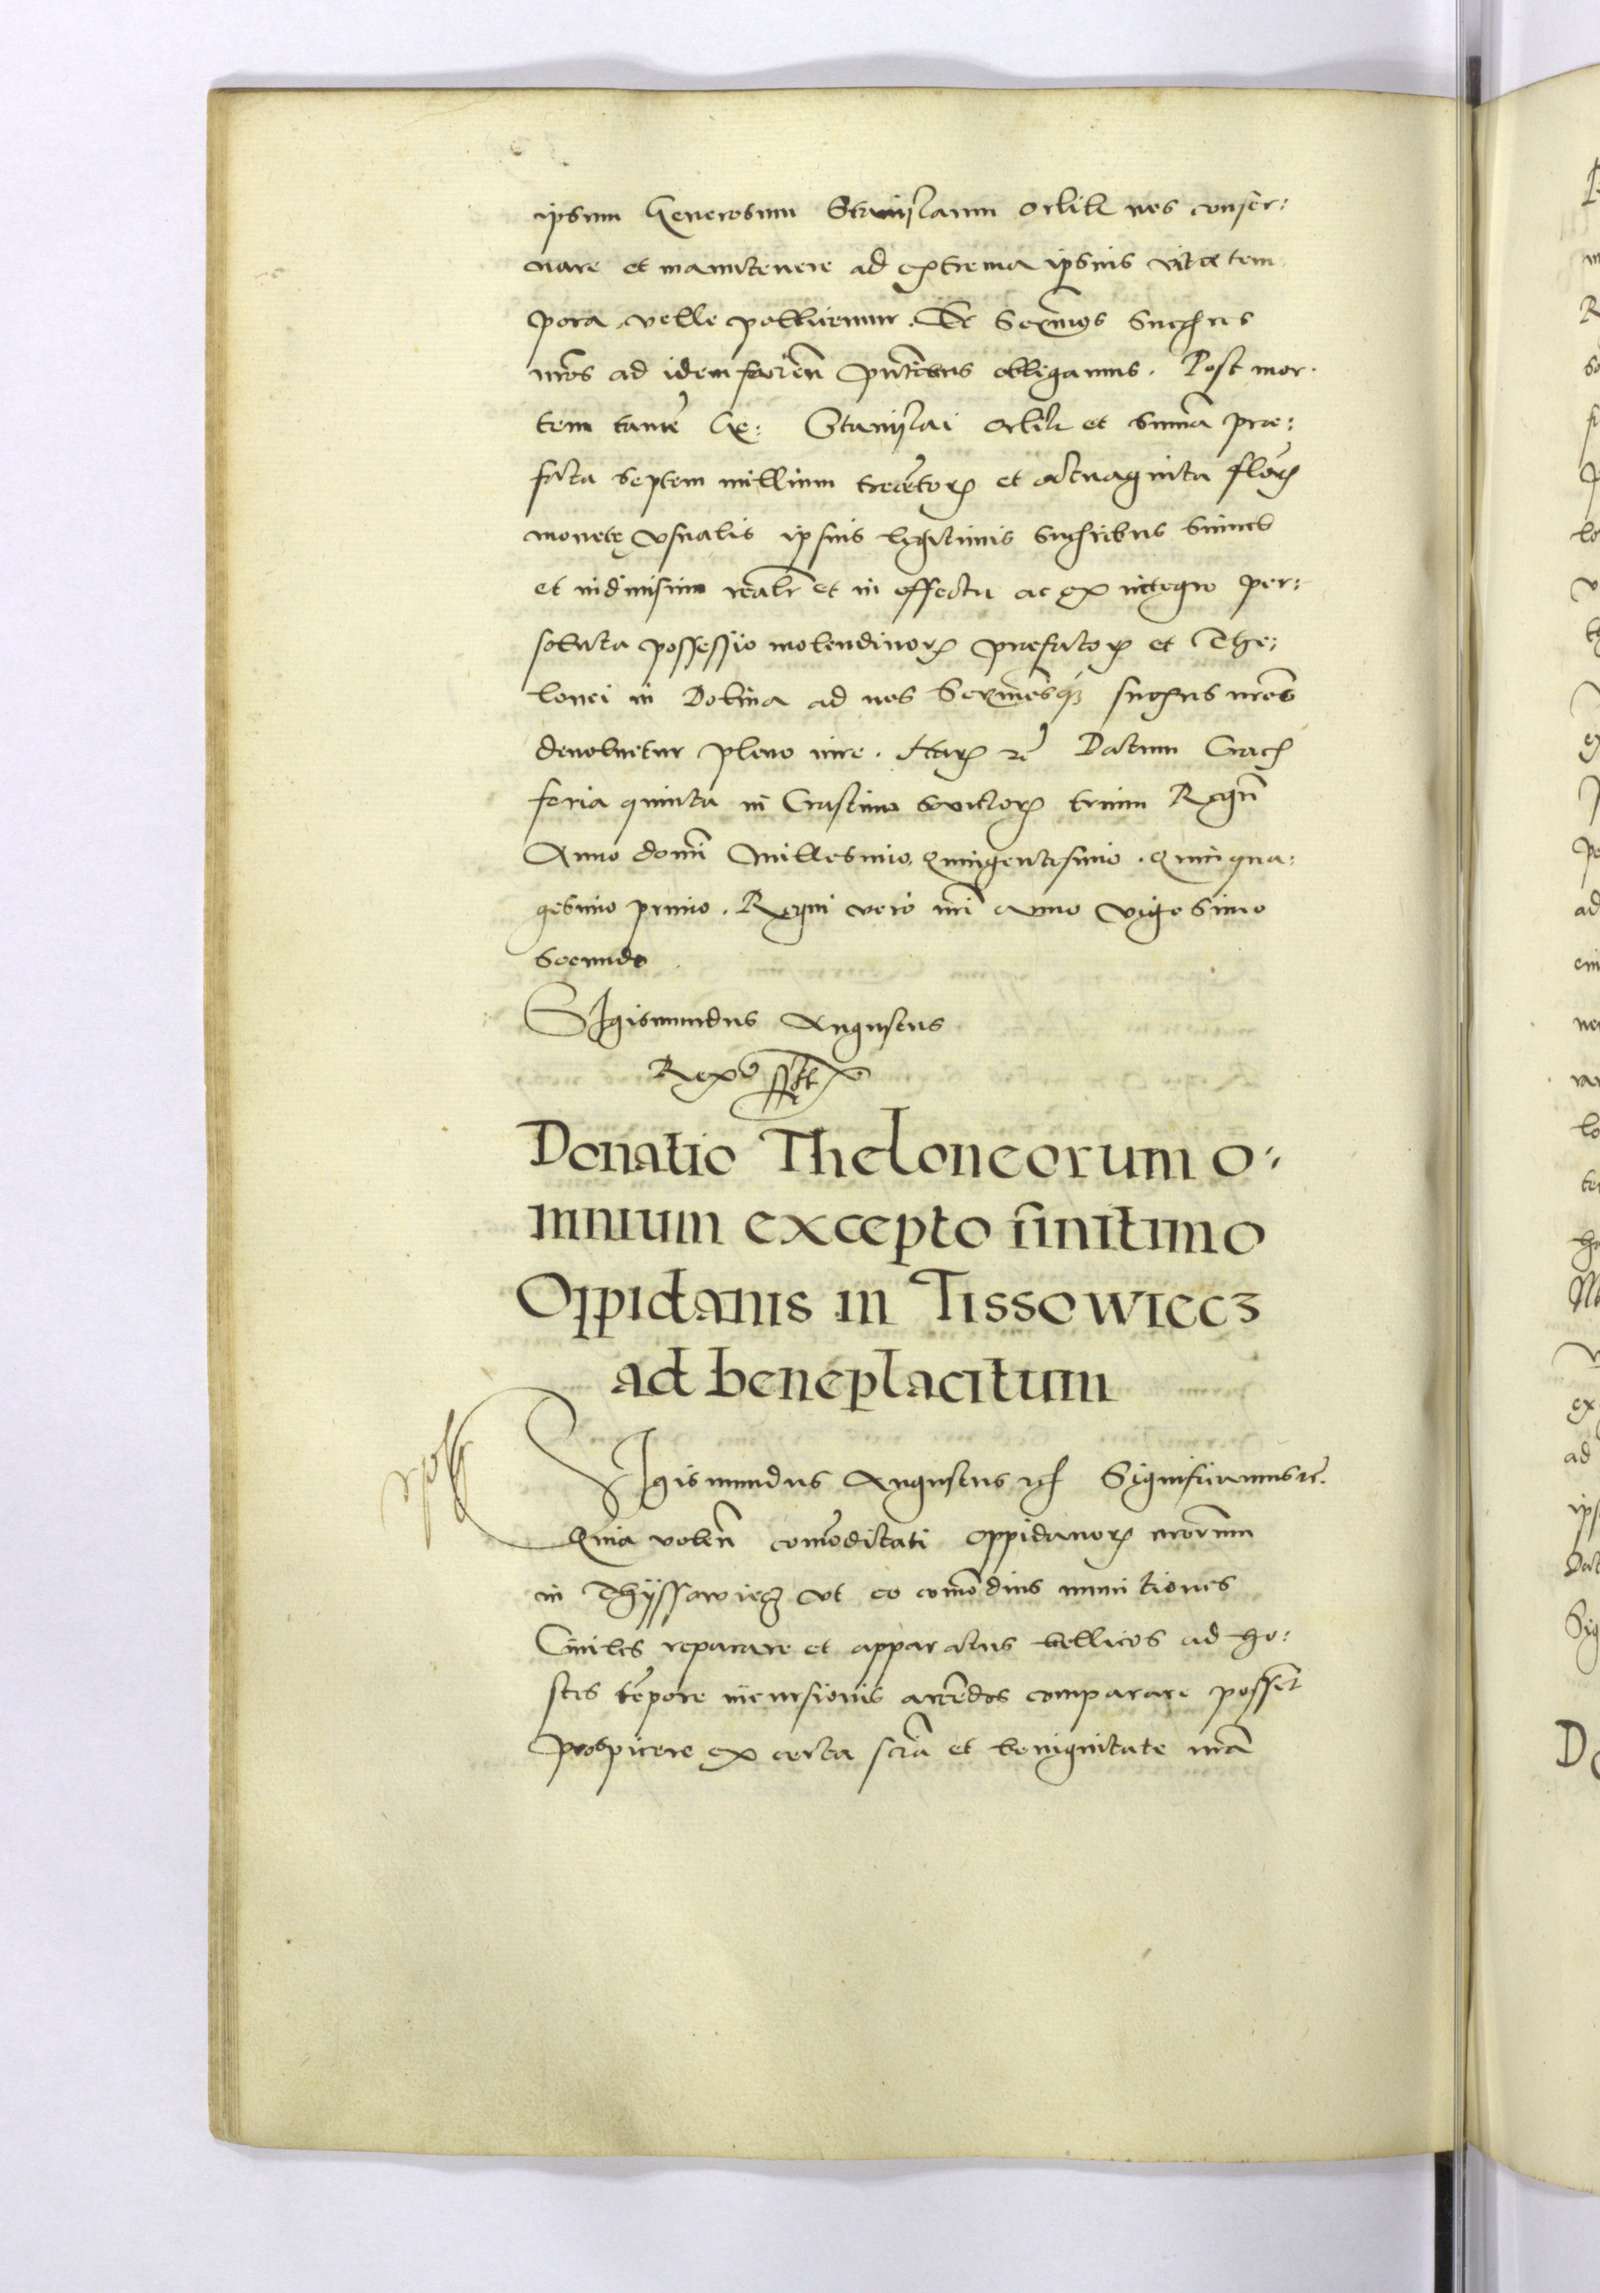 ipsum Generosum Stanislaum Orlik nos conser:
vare et manutenere ad extrema ipsius vitae tem
pora, velle pollicemur. Et Sermos Succres
nros ad idem faciẽn pntibus obligamus. Post mor
tem tamẽ Ge: Stanislai Orlik et summa prae:
fata septem millium trecẽtorum et octuaginta florẽ
monetę vsualis ipsius legitimis Successoribus simul
et indiuisim realr et in effectu ac ex integro per:
soluta possessio molendinorum praefatorum et The:
lonei in Dolina ad nos Sermosque succres nros
deuoluetur pleno iure. Harum rẽ Datum Crac
feria quinta in Crastino Sanctorum trium Regũ
Anno domi Millesimo Quingentesimo. Quinqua:
gesimo primo. Regni vero nri anno vigesimo
Secundo
SIgismundus Augustus
Rex sst
Donatio Theloneorum o:
mnium excepto finitimo
Oppidanis in Tissowiecz
ad beneplacitum
SIgismundus Augustus rc Significamus rc.
Quia volen comoditati oppidanorum nrorum
in Thÿssowiecz vt eo comodius munitiones
Ciuiles reparare et apparatus bellicos ad ho:
stes tẽpore incursionis arcẽdos comparare possent
Prospicere ex certa scia et benignitate nra